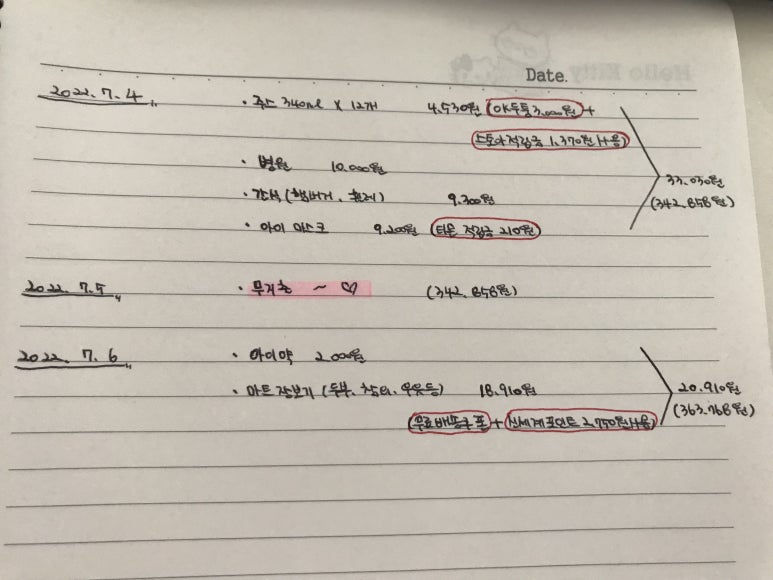 Hello Kitty
Date.
2022. 7. 4
• 주스 340ml x 12개 4,530원 (야쿠툿 3,000원 +
스토아적립금 1,370원 사용)
• 병원 10,000원
• 간식 (햄버거, ) 9,300원
• 아이 마스크 9,200원 (타운 적립금 210원)
33,030원
(342,858원)
2022. 7. 5
• 무지출 ~ ♡ (342,858원)
2022. 7. 6
• 아이약 2,000원
• 마트 장보기 (두부, 참치, 우유등) 18,910원
(무료배송쿠폰 + 신세계포인트 2,750원 사용)
20,910원
(363,768원)